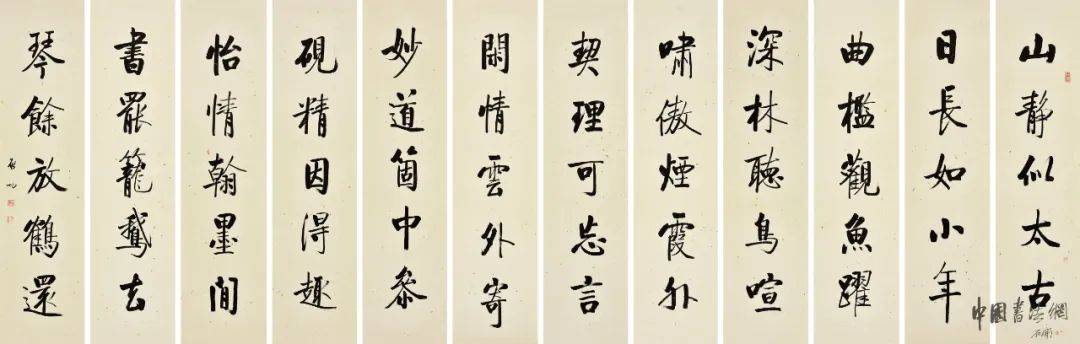 山靜似太古
日長如小年
曲檻觀魚躍
深林聽鳥喧
嘯傲煙霞外
契理可忘言
閑情雲外寄
妙道箇中參
硯精因得趣
怡情翰墨間
書罷籠鵞去
琴餘放鶴還
啟功
中國書法網